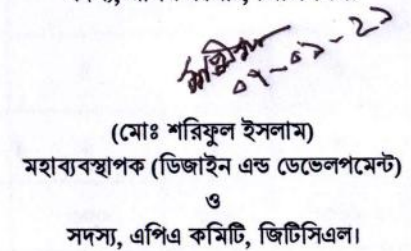 (মোঃ শরিফুল ইসলাম)
মহাব্যবস্থাপক (ডিজাইন এন্ড ডেভেলপমেন্ট)
ও
সদস্য, এপিএ কমিটি, জিটিসিএল।